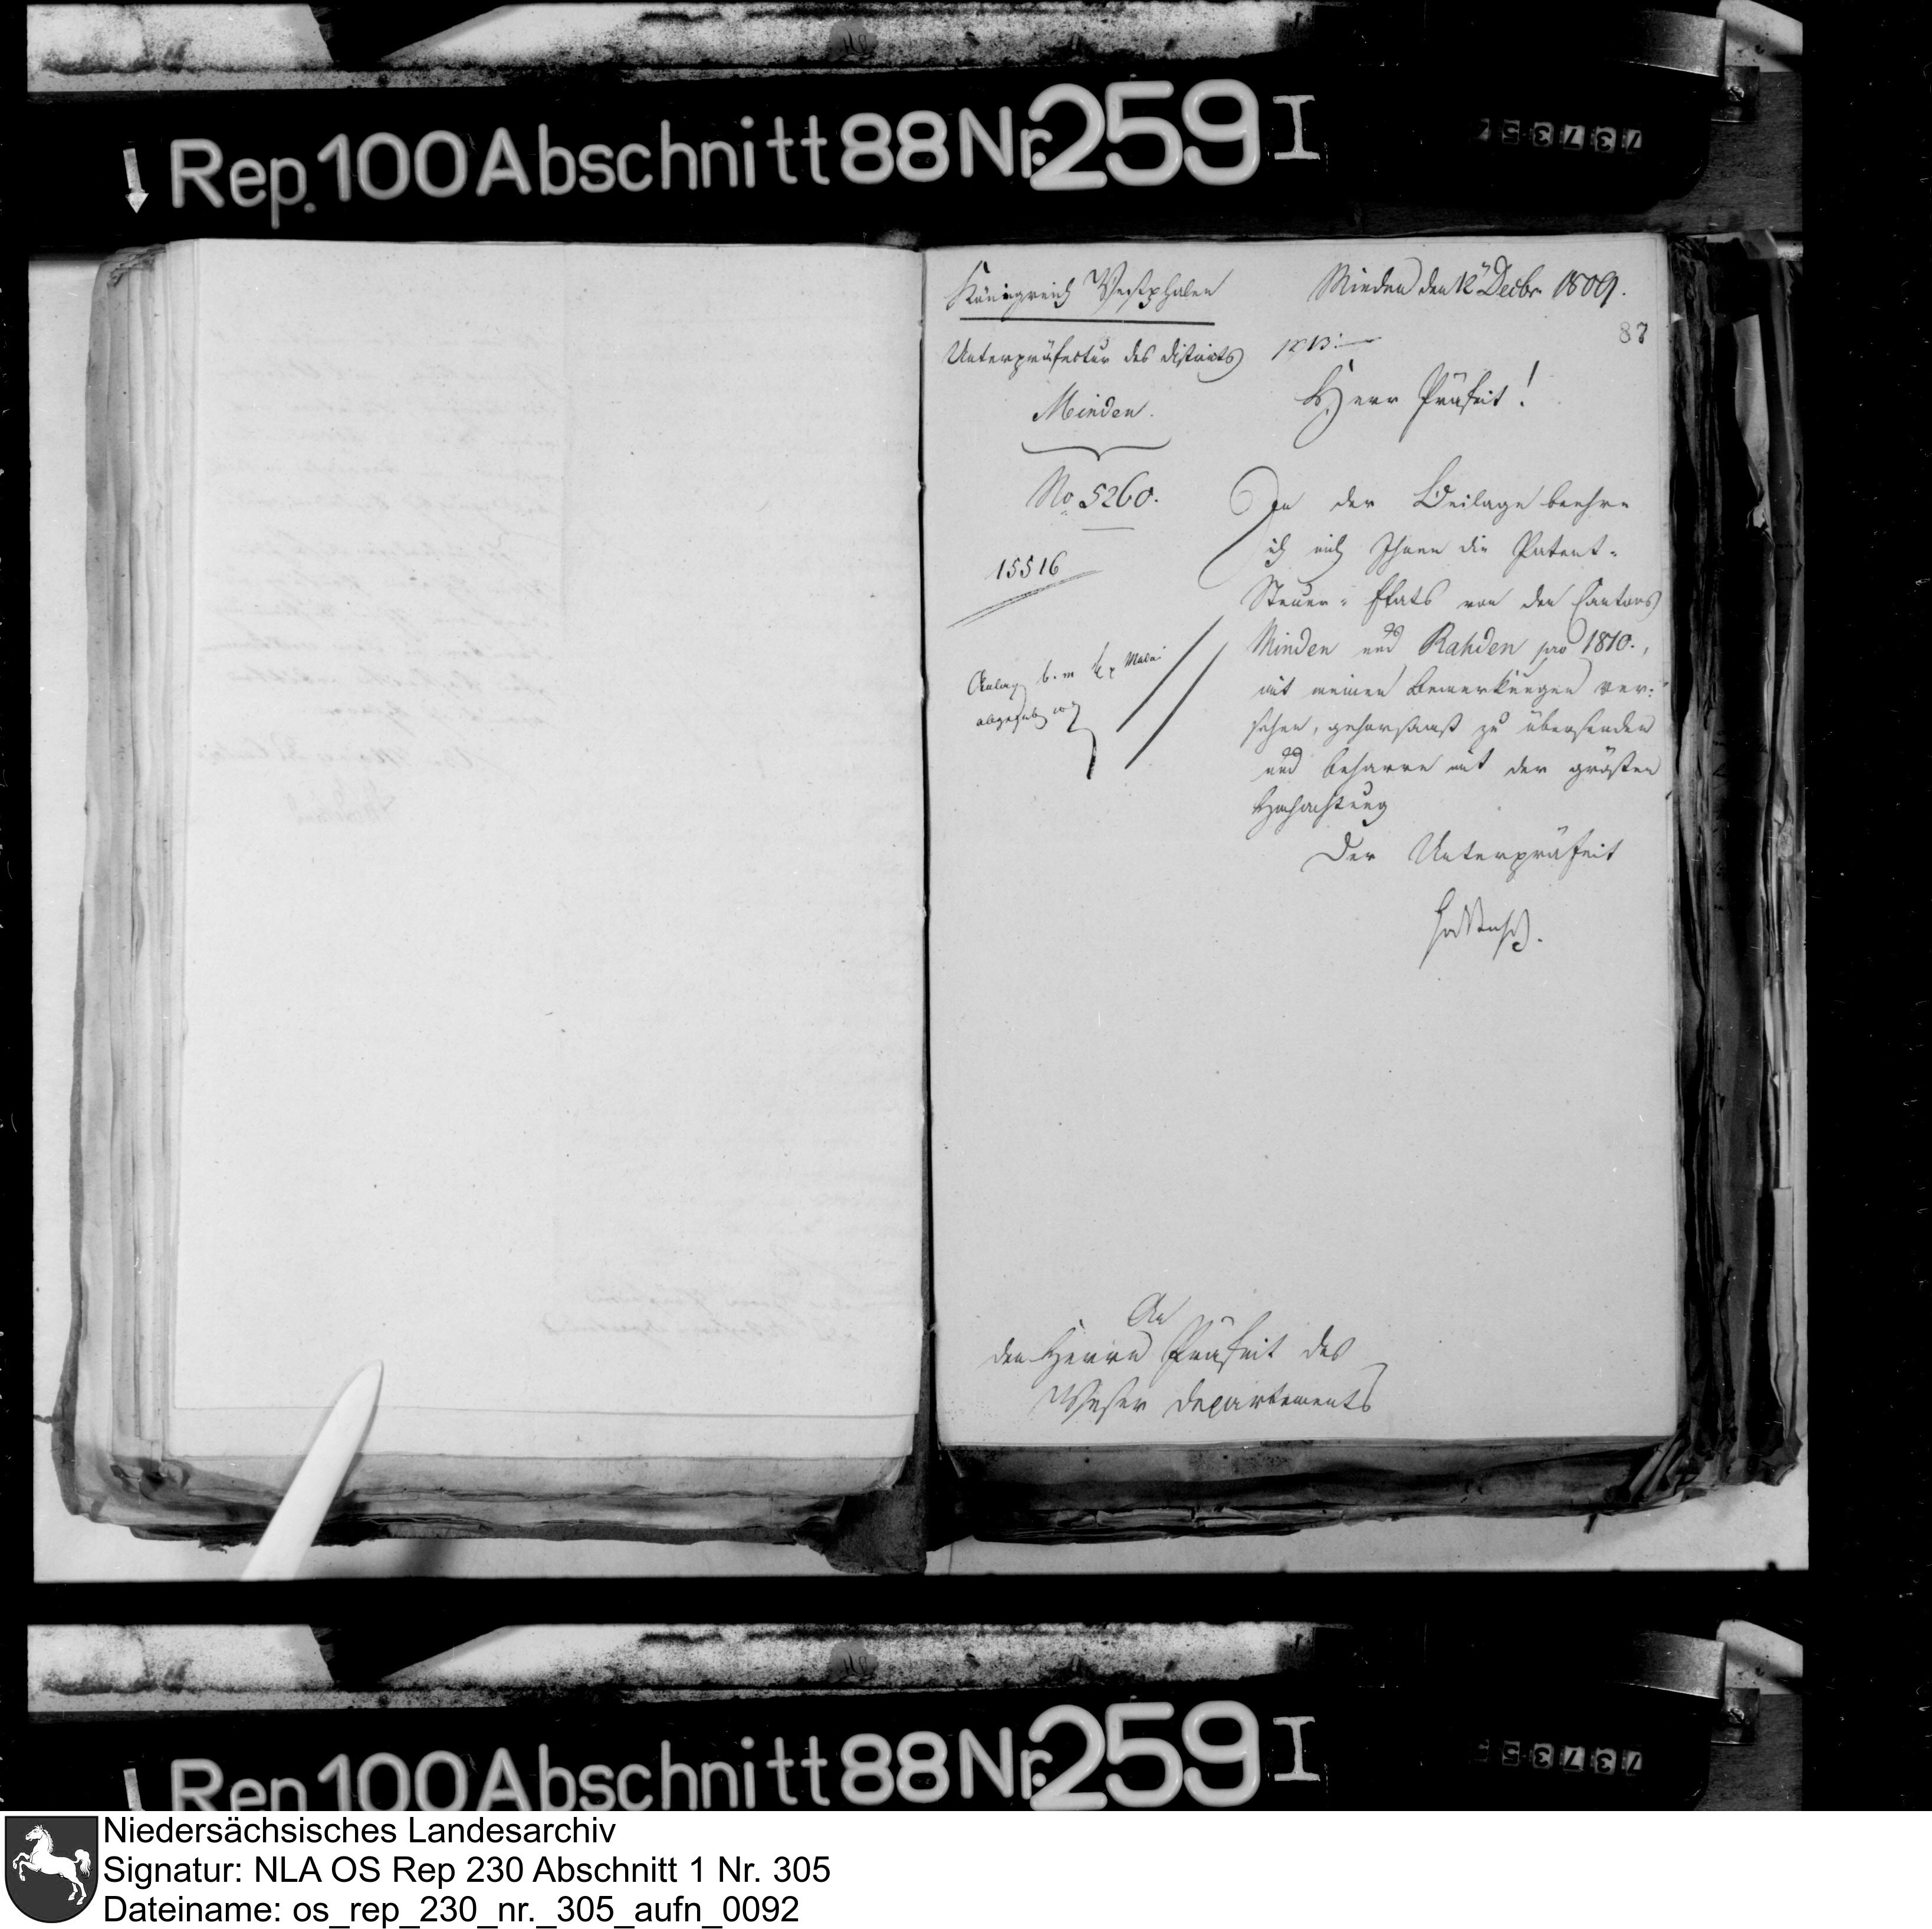 Rep. 100 Abschnitt 88 Nr. 259 I
Königreich Westphalen
Unterpräfectur des districts
Minden.
No 5260.
15516
Minden den 12 Decbr 1809.
88
Herr Präfect!
In der Beilage beehre
ich mich Ihnen die Patent-
Steuer-Etats von den Cantons
Minden und Rahden pro 1810.,
mit meinen Bemerkungen ver-
sehen, gehorsamst zu übersenden
und beharre mit der größten
Hochachtung
Der Unterpräfect
An
den Herrn Präfect des
Weser departements
Rep 100 Abschnitt 88 Nr. 259 I
Niedersächsisches Landesarchiv
Signatur: NLA OS Rep 230 Abschnitt 1 Nr. 305
Dateiname: os_rep_230_nr._305_aufn_0092